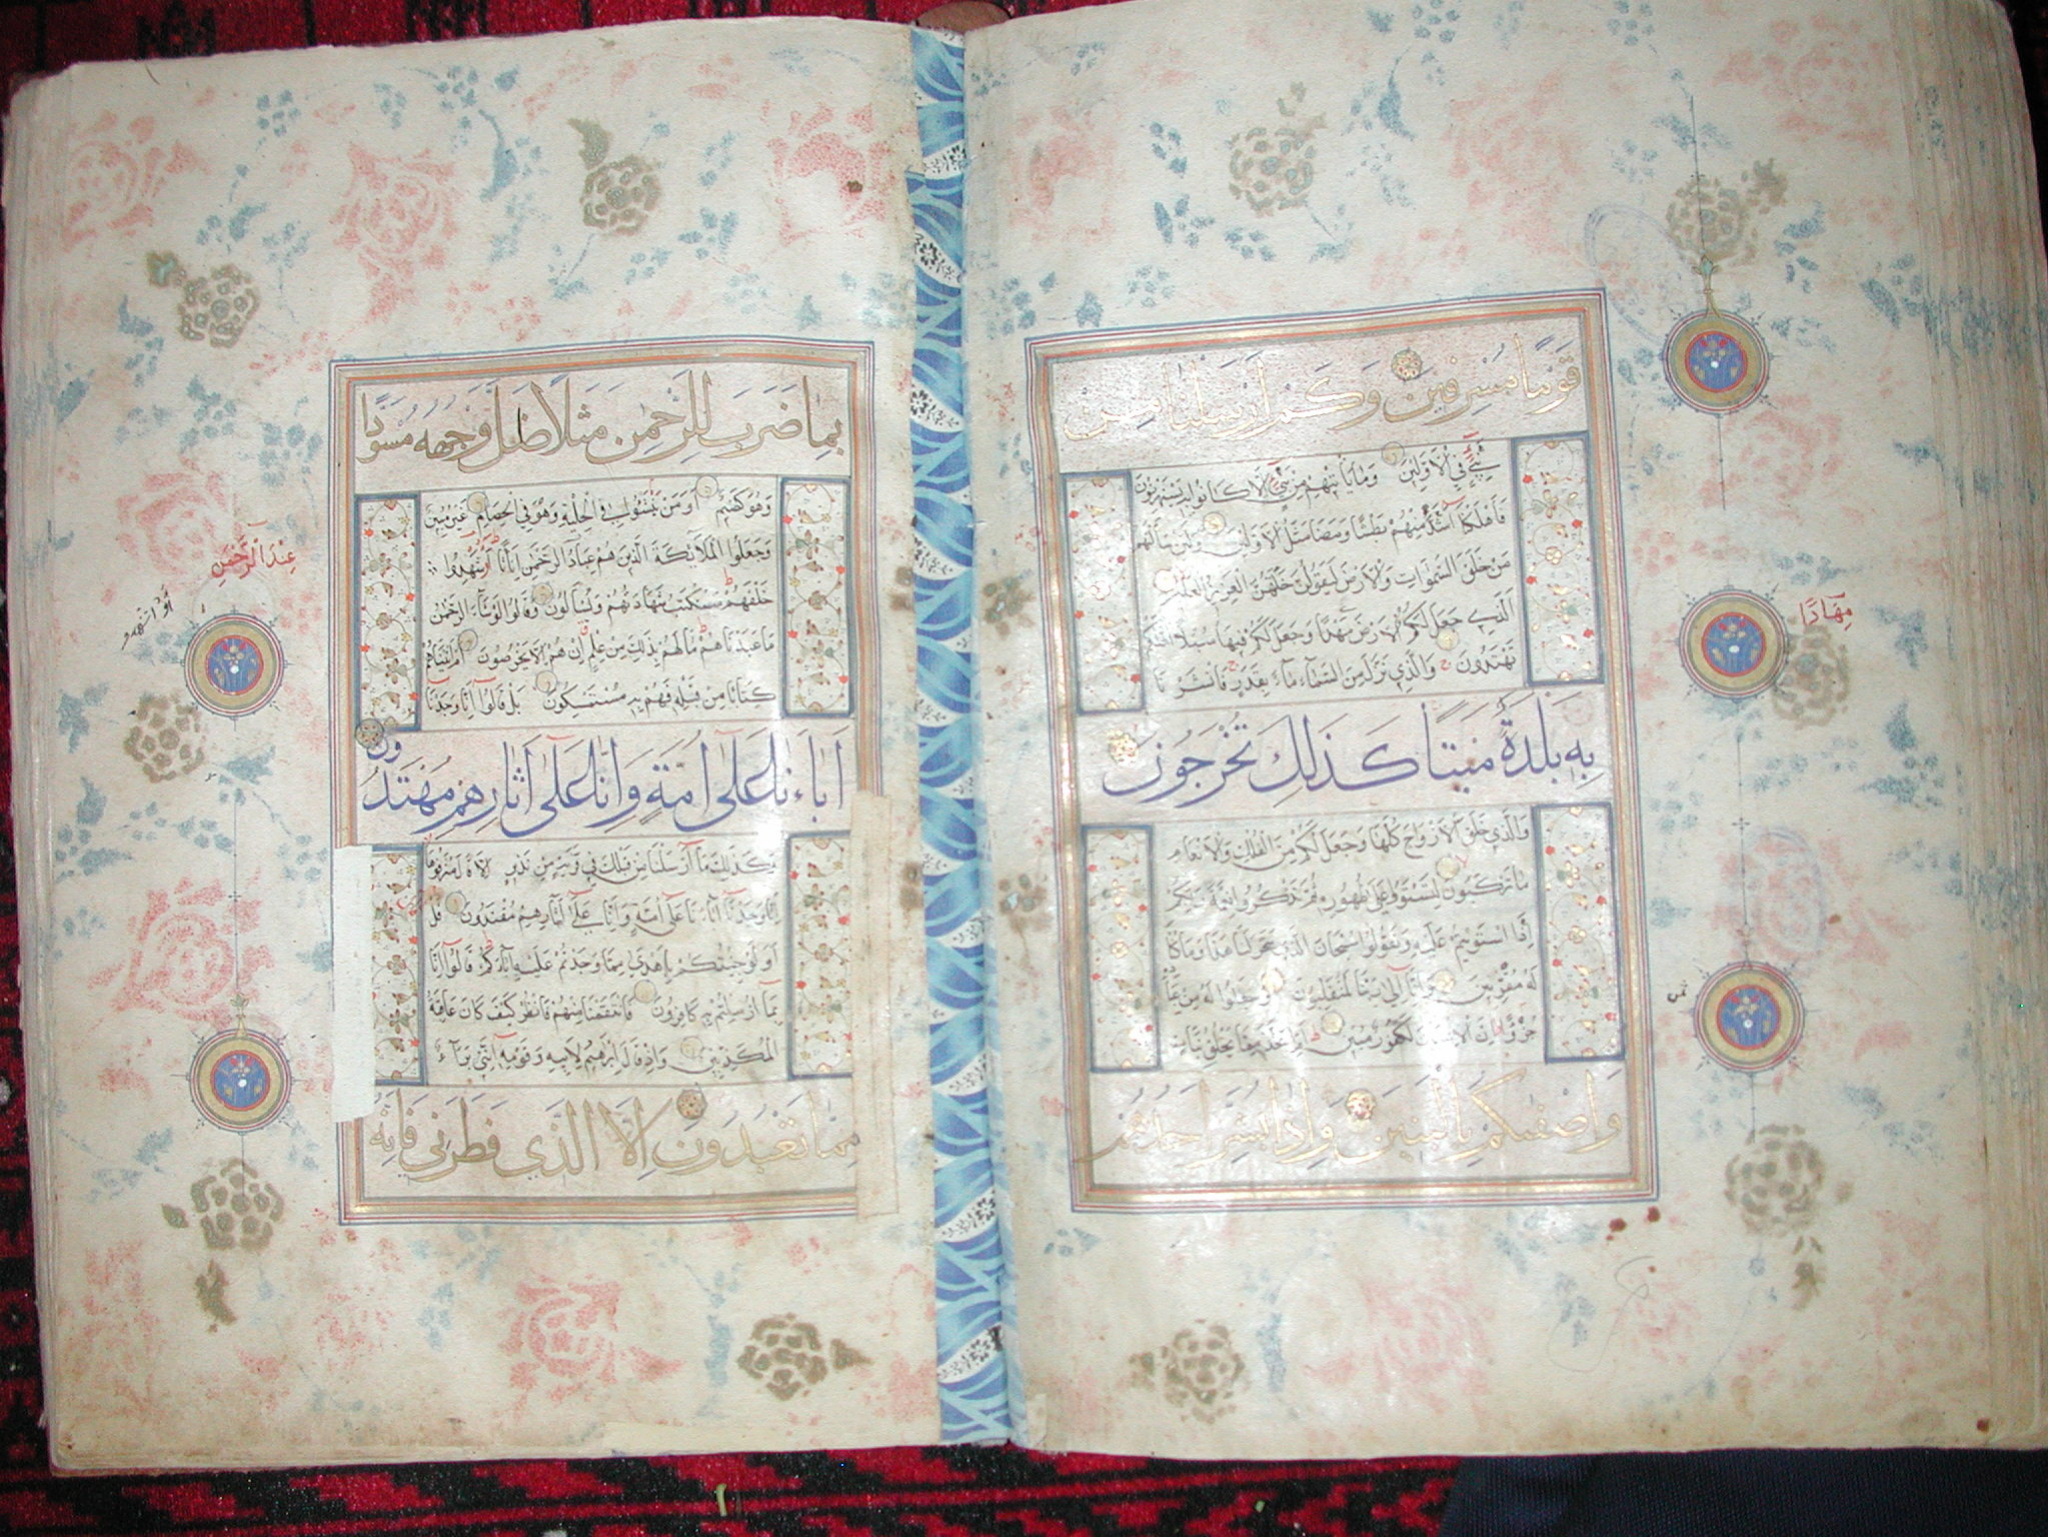 قَوْمًا مُسْرِفِينَ وَكَمْ أَرْسَلْنَا مِنْ
نَبِيٍّ فِي الْأَوَّلِينَ وَمَا يَأْتِيهِمْ مِنْ نَبِيٍّ إِلَّا كَانُوا بِهِ يَسْتَهْزِئُونَ
فَأَهْلَكْنَا أَشَدَّ مِنْهُمْ بَطْشًا وَمَضَىٰ مَثَلُ الْأَوَّلِينَ وَلَئِنْ سَأَلْتَهُمْ
مَنْ خَلَقَ السَّمٰوَاتِ وَالْأَرْضَ لَيَقُولُنَّ خَلَقَهُنَّ الْعَزِيزُ الْعَلِيمُ
الَّذِي جَعَلَ لَكُمُ الْأَرْضَ مَهْدًا وَجَعَلَ لَكُمْ فِيهَا سُبُلًا لَعَلَّكُمْ
تَهْتَدُونَ وَالَّذِي نَزَّلَ مِنَ السَّمَاءِ مَاءً بِقَدَرٍ فَأَنْشَرْنَا
بِهِ بَلْدَةً مَيْتًا كَذٰلِكَ تُخْرَجُونَ
وَالَّذِي خَلَقَ الْأَزْوَاجَ كُلَّهَا وَجَعَلَ لَكُمْ مِنَ الْفُلْكِ وَالْأَنْعَامِ
مَا تَرْكَبُونَ لِتَسْتَوُوا عَلَىٰ ظُهُورِهِ ثُمَّ تَذْكُرُوا نِعْمَةَ رَبِّكُمْ
إِذَا اسْتَوَيْتُمْ عَلَيْهِ وَتَقُولُوا سُبْحَانَ الَّذِي سَخَّرَ لَنَا هٰذَا وَمَا كُنَّا
لَهُ مُقْرِنِينَ وَإِنَّا إِلَىٰ رَبِّنَا لَمُنْقَلِبُونَ وَجَعَلُوا لَهُ مِنْ عِبَادِهِ
جُزْءًا إِنَّ الْإِنْسَانَ لَكَفُورٌ مُبِينٌ أَمِ اتَّخَذَ مِمَّا يَخْلُقُ بَنَاتٍ
وَأَصْفَاكُمْ بِالْبَنِينَ وَإِذَا بُشِّرَ أَحَدُهُمْ
مِهَادًا
ثمن
بِمَا ضَرَبَ لِلرَّحْمٰنِ مَثَلًا ظَلَّ وَجْهُهُ مُسْوَدًّا
وَهُوَ كَظِيمٌ أَوَمَنْ يُنَشَّؤُا فِي الْحِلْيَةِ وَهُوَ فِي الْخِصَامِ غَيْرُ مُبِينٍ
وَجَعَلُوا الْمَلَائِكَةَ الَّذِينَ هُمْ عِبَادُ الرَّحْمٰنِ إِنَاثًا أَشَهِدُوا
خَلْقَهُمْ سَتُكْتَبُ شَهَادَتُهُمْ وَيُسْأَلُونَ وَقَالُوا لَوْ شَاءَ الرَّحْمٰنُ
مَا عَبَدْنَاهُمْ مَا لَهُمْ بِذٰلِكَ مِنْ عِلْمٍ إِنْ هُمْ إِلَّا يَخْرُصُونَ أَمْ آتَيْنَاهُمْ
كِتَابًا مِنْ قَبْلِهِ فَهُمْ بِهِ مُسْتَمْسِكُونَ بَلْ قَالُوا إِنَّا وَجَدْنَا
آبَاءَنَا عَلَىٰ أُمَّةٍ وَإِنَّا عَلَىٰ آثَارِهِمْ مُهْتَدُونَ
وَكَذٰلِكَ مَا أَرْسَلْنَا مِنْ قَبْلِكَ فِي قَرْيَةٍ مِنْ نَذِيرٍ إِلَّا قَالَ مُتْرَفُوهَا
إِنَّا وَجَدْنَا آبَاءَنَا عَلَىٰ أُمَّةٍ وَإِنَّا عَلَىٰ آثَارِهِمْ مُقْتَدُونَ قُلْ
أَوَلَوْ جِئْتُكُمْ بِأَهْدَىٰ مِمَّا وَجَدْتُمْ عَلَيْهِ آبَاءَكُمْ قَالُوا إِنَّا
بِمَا أُرْسِلْتُمْ بِهِ كَافِرُونَ فَانْتَقَمْنَا مِنْهُمْ فَانْظُرْ كَيْفَ كَانَ عَاقِبَةُ
الْمُكَذِّبِينَ وَإِذْ قَالَ إِبْرٰهِيمُ لِأَبِيهِ وَقَوْمِهِ إِنَّنِي بَرَاءٌ
مِمَّا تَعْبُدُونَ إِلَّا الَّذِي فَطَرَنِي فَإِنَّهُ
عِنْدَ الرَّحْمٰنِ